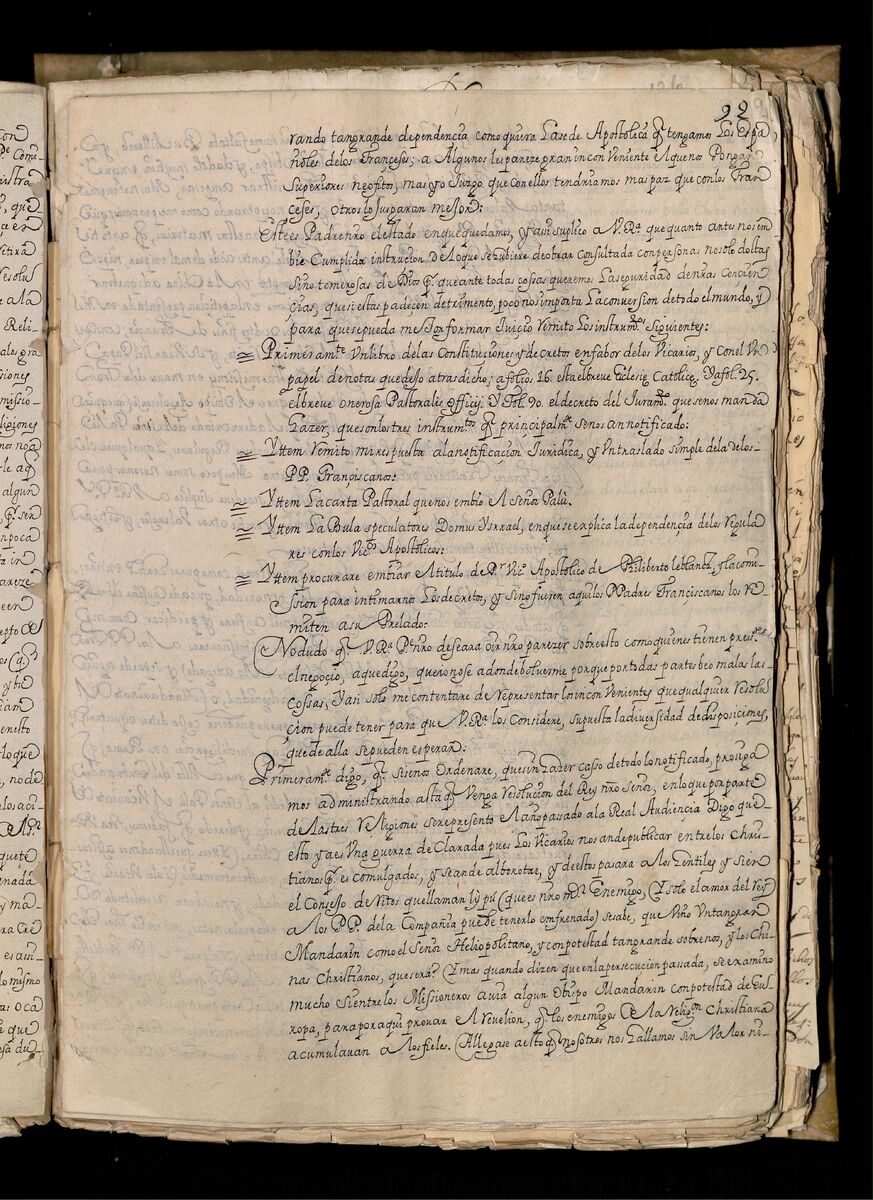 98
rando tangrande dependencia como quiere La sede Apostolica q̃ tengamos Los Espa
ñoles delos Franceses; a Algunos les pareze gran inconveniente el que nos Pongan
Superiores neofitos, mas yo Juzgo que con ellos tendriamos mas paz que con los Fran
ceses; otros lo Juzgaran mejor:
Este es Padre nrõ el estado en que quedamos, y assi suplico a V. Rª. que quanto antes nos em
bie Cumplida instrucion delo que se hubiere de obrar Consultada con personas no solo doctas
sino temerosas de Dios pr. que ante todas cossas queremos La seguridad de nras Concien
cias, que si estas padecen detrimento, poco nos importa La conversion de todo el mundo, y
para que se pueda mejor formar Juicio Remito Los instrumtos. siguientes:
Primeramte. Un libro de las Constituciones y decretos en fabor de los Vicarios, y con el Un
papel de notas que dejo atras dicho; a folio 16 esta el breve Eclesie Catholice. Ya fol. 25.
el breve onerosa Pastoralis Officij. Y Fol. 90. el decreto del Juramto. que se nos manda
hazer, que son los tres instrumtos q̃ principalmte. se nos an notificado:
Yttem Remito mi respuesta ala notificacion Juridica, y Un traslado simple de la de los
PP. Franciscanos:
Yttem La carta Pastoral que nos embio el Señor Palù.
Yttem La Bula speculatores Domus Ysrrael, en que se explica la dependencia de los Regula
res con los Vicos. Apostolicos:
Yttem procurare embiar el titulo de Pr. Vico. Apostolico de Philiberto leblanch, y la comi
ssion para intimarnos Los decretos, y sino fuesen aqui los PPadres Franciscanos los Re
miten a su Prelado:
No dudo q̃ V. Rª. Pe. nrõ deseara oir nrõ parezer sobre esto como quienes tienen presste.
el negocio, a que digo, que no se a donde bolverme por que por todas partes beo malas las
cossas, Y asi solo me contentare de Representar Los inconvenientes que qualquier Resolu
cion puede tener para que V. Rª. los Considere, supuesta la diversidad de disposiciones,
que de alla se pueden esperar:
Primeramte. digo, q̃. si se nos Ordenare, que sin hazer casso de todo lo notificado, prosiga
mos administrando asta q̃ Venga Resolucion del Rey nrõ Señor, en lo que por parte
de Las tres Religiones se represento el año pasado ala Real Audiencia Digo que
esto ya es Una guerra declarada pues Los Vicarios nos an de publicar entre los Chris
tianos pr. escomulgados, y se an de alborotar, y de estos pasara a los Gentiles y sien
el Consejo de Rites que llaman lỳ pú (que es nrõ mor. Enemigo, (y solo el amor del Rey
a los PP. de la Compañia puede tenerlo enfrenado) se sabe, que Vino Un tan gran
Mandarin como el Señor Heliopolitano, y con potestad tan grande sobre nos, y los Chi
nas Christianos, que sera? (y mas quando dizen que en la persecucion passada, se examino
mucho si entre los Missioneros avia algun Obispo Mandarin con potestad de Eu
ropa, para por aqui provar el Revelion, q̃ los enemigos de la Religon. Christiana
acumulavan a los fieles. (Allegase a esto q̃ nosotros nos hallamos sin Valor ni